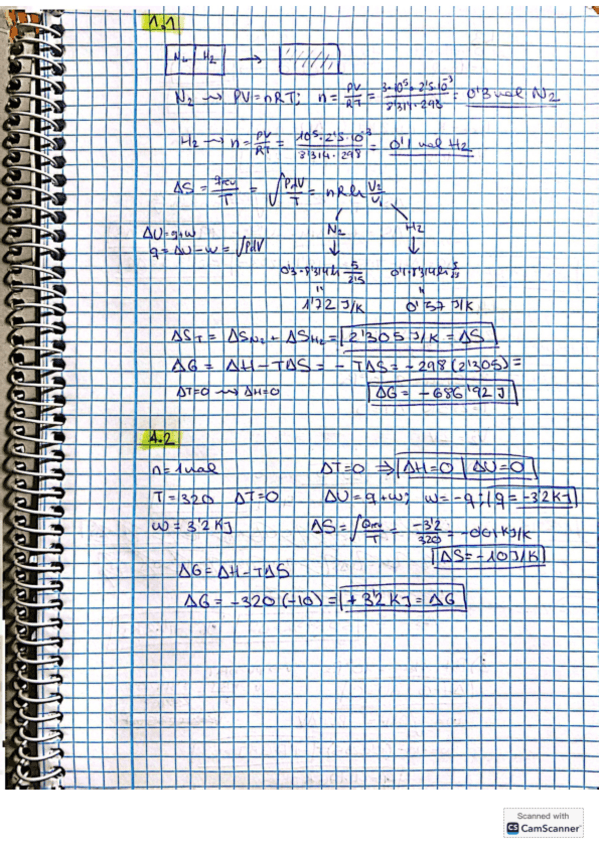 1.1
N₂ H₂ →
N₂ ⇝ PV=nRT; n = PV/RT = 3·10⁵·2'5·10⁻³/8'314·298 = 0'3 mol N₂
H₂ ⇝ n = PV/RT = 10⁵·2'5·10⁻³/8'314·298 = 0'1 mol H₂
ΔS = qrev/T = ∫PdV/T = nR ln V₂/V₁
ΔU=q+w
N₂ H₂
q = ΔU - w = ∫PdV
0'3·8'314 ln 5/2'5 0'1·8'314 ln 5/2'5
1'72 J/K 0'57 J/K
ΔS_T = ΔS_N₂ + ΔS_H₂ = 2'305 J/K = ΔS
ΔG = ΔH - TΔS = - TΔS = - 298 (2'305) =
ΔT=0 ⇝ ΔH=0 ΔG = - 686'92 J
4.2
n = 1 mol ΔT=0 ⇒ ΔH=0 ΔU=0
T = 320 ΔT=0 ΔU = q+w; w = -q; q = -3'2 KJ
w = 3'2 KJ ΔS = ∫ qrev/T = -3'2/320 = -0'01 KJ/K
ΔS = -10 J/K
ΔG = ΔH - TΔS
ΔG = -320 (-10) = + 3'2 KJ = ΔG
Scanned with
CS CamScanner